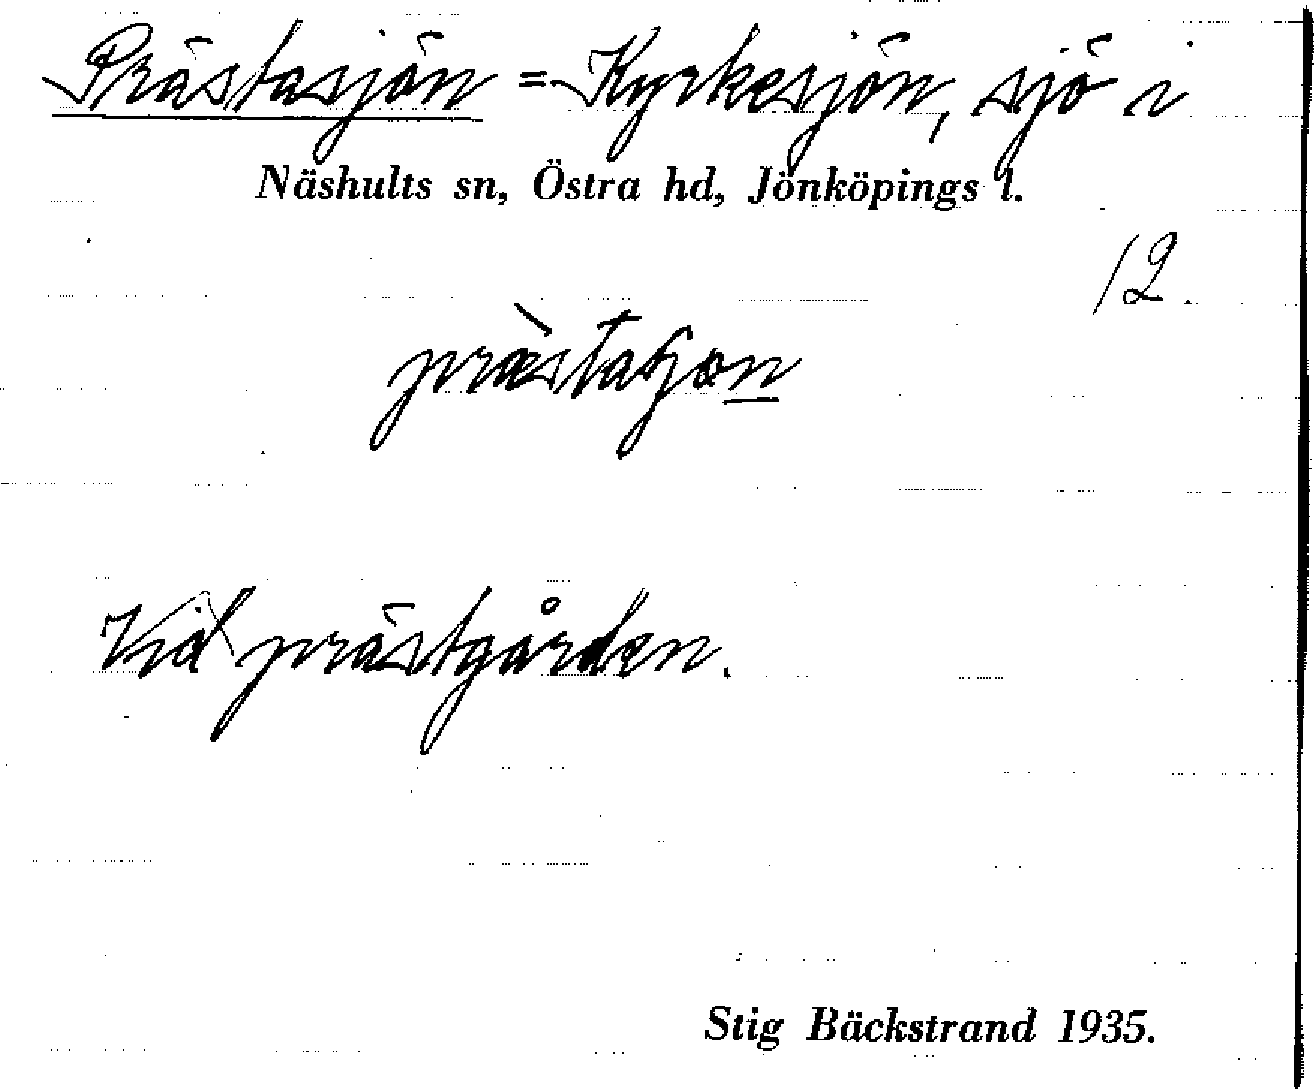 Prästasjön = Kyrkesjön, sjö i
Näshults sn, Östra hd, Jönköpings l.
12.
Vid prästgården.
Stig Bäckstrand 1935.